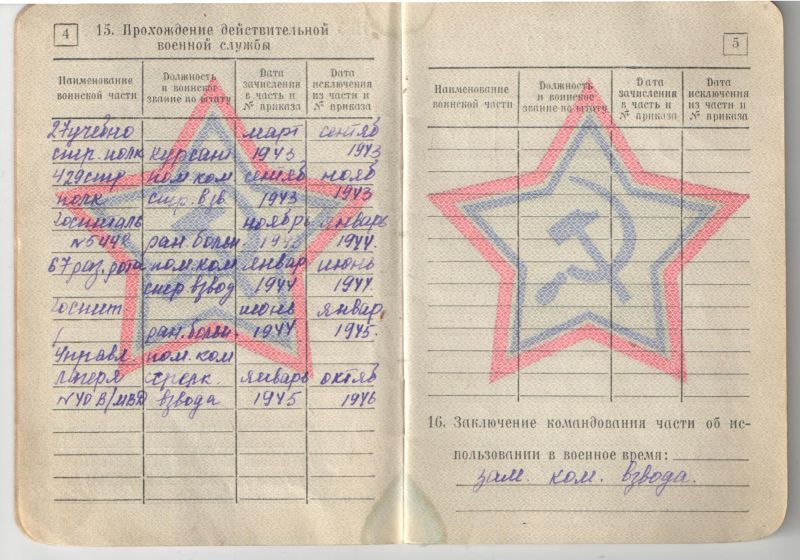 4
15. Прохождение действительной
военной службы
Наименование воинской части
Должность и воинское звание по штату
Дата зачисления в часть и № приказа
Дата исключения из части и № приказа
27 учебно март сентяб
стр. полк курсант 1943 1943
429 стр пом. ком сентяб нояб
полк стр. взв 1943 1943
Госпиталь ноябрь январь
ран. больн. 1943 1944.
67 раз. рота пом. ком январ июнь
стр взвод 1944 1944.
Госпит июнь январ
ран. больн 1944 1945.
Управл пом. ком
лагеря стрелк. январь октяб
взвода 1945 1946
5
Наименование воинской части
Должность и воинское звание по штату
Дата зачисления в часть и № приказа
Дата исключения из части и № приказа
16. Заключение командования части об ис-
пользовании в военное время:
зам. ком. взвода.